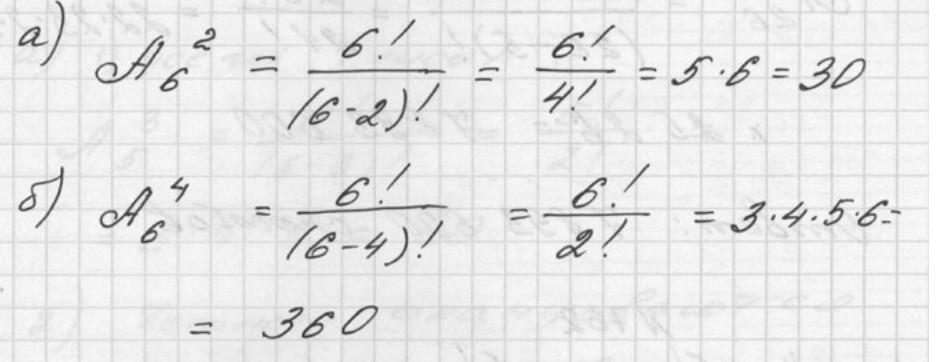 а) A₆² = 6!/(6-2)! = 6!/4! = 5·6 = 30
б) A₆⁴ = 6!/(6-4)! = 6!/2! = 3·4·5·6=
= 360